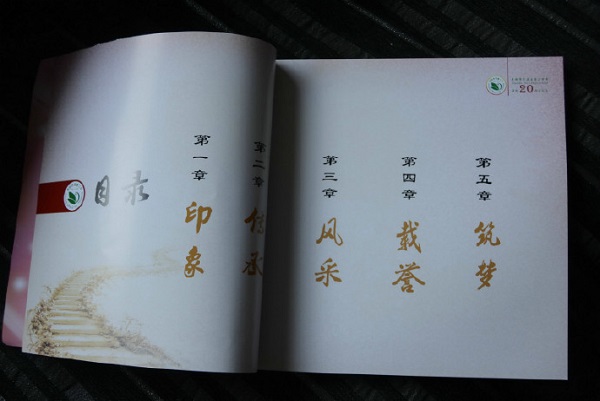 目录
第一章
印象
第二章
传承
第三章
风采
第四章
载誉
第五章
筑梦
20